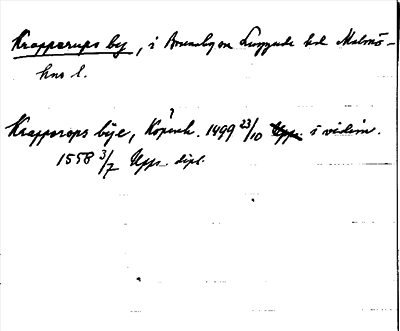 Krapperups by, i Brunnby sn Luggude hd Malmö-
hus l.
Krapperops bÿe, Köpenh. ? 1499 23/10 Upps. i vidim.
1558 3/7 Upps. dipl.